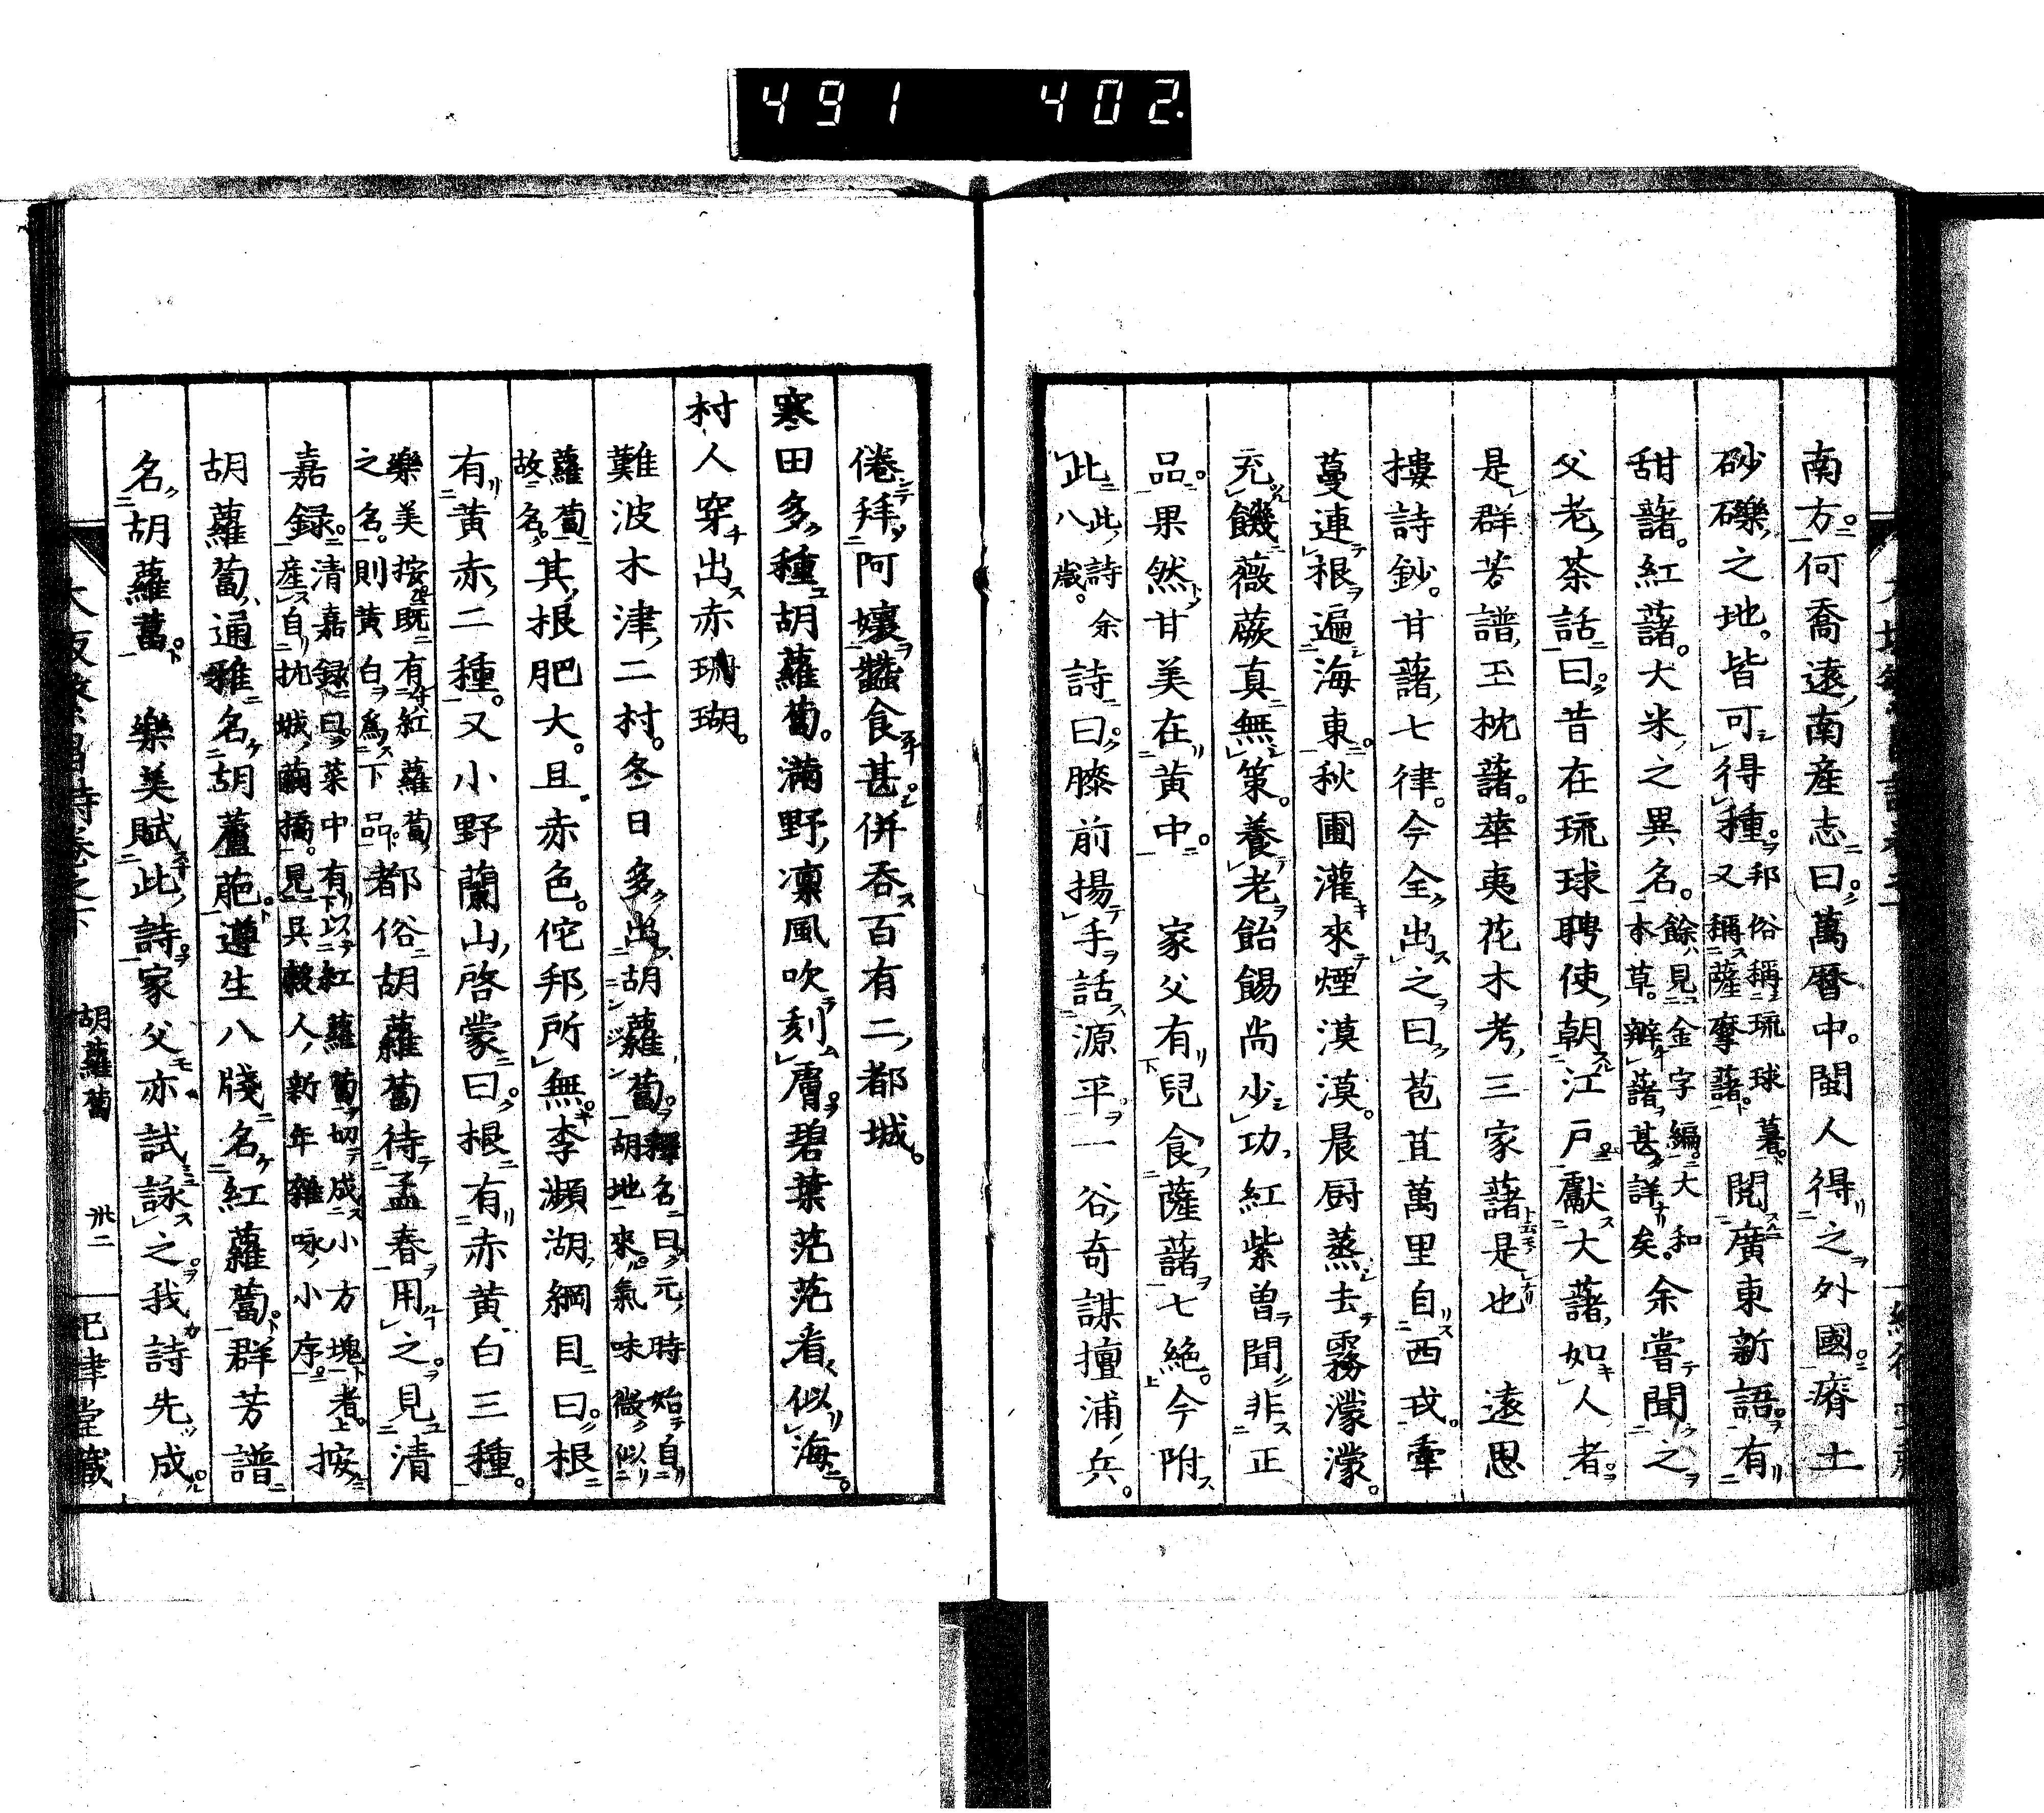 491 402.
南方。何喬遠、南産志曰。萬曆中。閩人得之外國。瘠土
砂礫之地。皆可得種。邦俗稱琉球薯。又稱薩摩藷。閱廣東新語。有
甜藷。紅藷。大米之異名。餘見金字編。大和本草。辯藷甚詳矣。余嘗聞之
父老茶話曰。昔在琉球聘使朝江戶。獻大藷如人者。
是群芳譜、玉枕藷。華夷花木考、三家藷是也 遠思
摟詩鈔。甘藷七律。今全出之曰。苞苴萬里自西戎。牽
蔓連根遍海東。秋圃灌來煙漠漠。晨厨蒸去霧濛濛。
充饑薇蕨真無策。養老飴餳尚少功。紅紫曾聞非正
品。果然甘美在黃中。 家父有兒食薩藷七絶。今附
此。此詩余八歲。詩曰。膝前揚手話源平。一谷奇謀擅浦兵。
倦拜阿孃蠶食甚。併吞百有二都城。
寒田多種胡蘿蔔。滿野凛風吹刻膚。碧葉茫茫看似海。
村人穿出赤珊瑚。
難波木津二村。冬日多出胡蘿蔔。釋名曰。元時始自胡地來。氣味微似
蘿蔔故名。其根肥大。且赤色。佗邦所無。李瀕湖綱目曰。根
有黄赤二種。又小野蘭山啓蒙曰。根有赤黄白三種。
樂美按既有紅蘿蔔之名。則黄白爲下品。都俗胡蘿蔔待孟春用之。見清
嘉録。清嘉録曰。菜中有紅蘿蔔切成小方塊者。産自抗城繭橋。見吳穀人新年雜咏小序。按
胡蘿蔔、通雅名胡蘆萉。遵生八牋名紅蘿蔔。群芳譜
名胡蘿蔔。 樂美賦此詩。家父亦試詠之。我詩先成。
大坂繁昌詩卷之下 胡蘿蔔 卅二